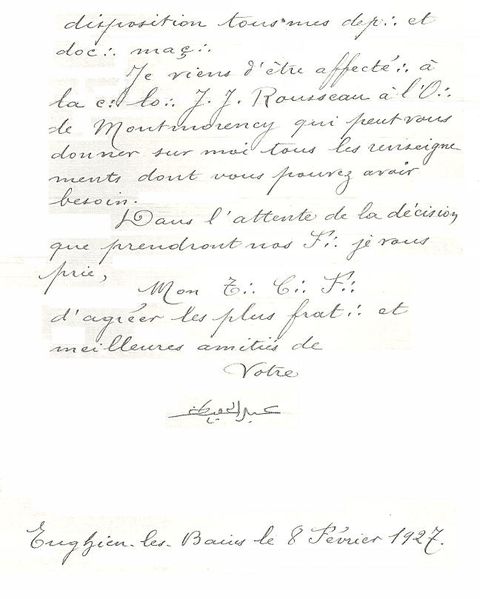 disposition tous mes dep∴ et
doc∴ maç∴
Je viens d'être affecté∴ à
la c∴ lo∴ J. J. Rousseau à l'O∴
de Montmorency qui peut vous
donner sur moi tous les renseigne
ments dont vous pouvez avoir
besoin.
Dans l'attente de la décision
que prendront nos F∴ je vous
prie,
Mon T∴ C∴ F∴
d'agréer les plus frat∴ et
meilleures amitiés de
Votre
Enghien-les-Bains le 8 Février 1927.